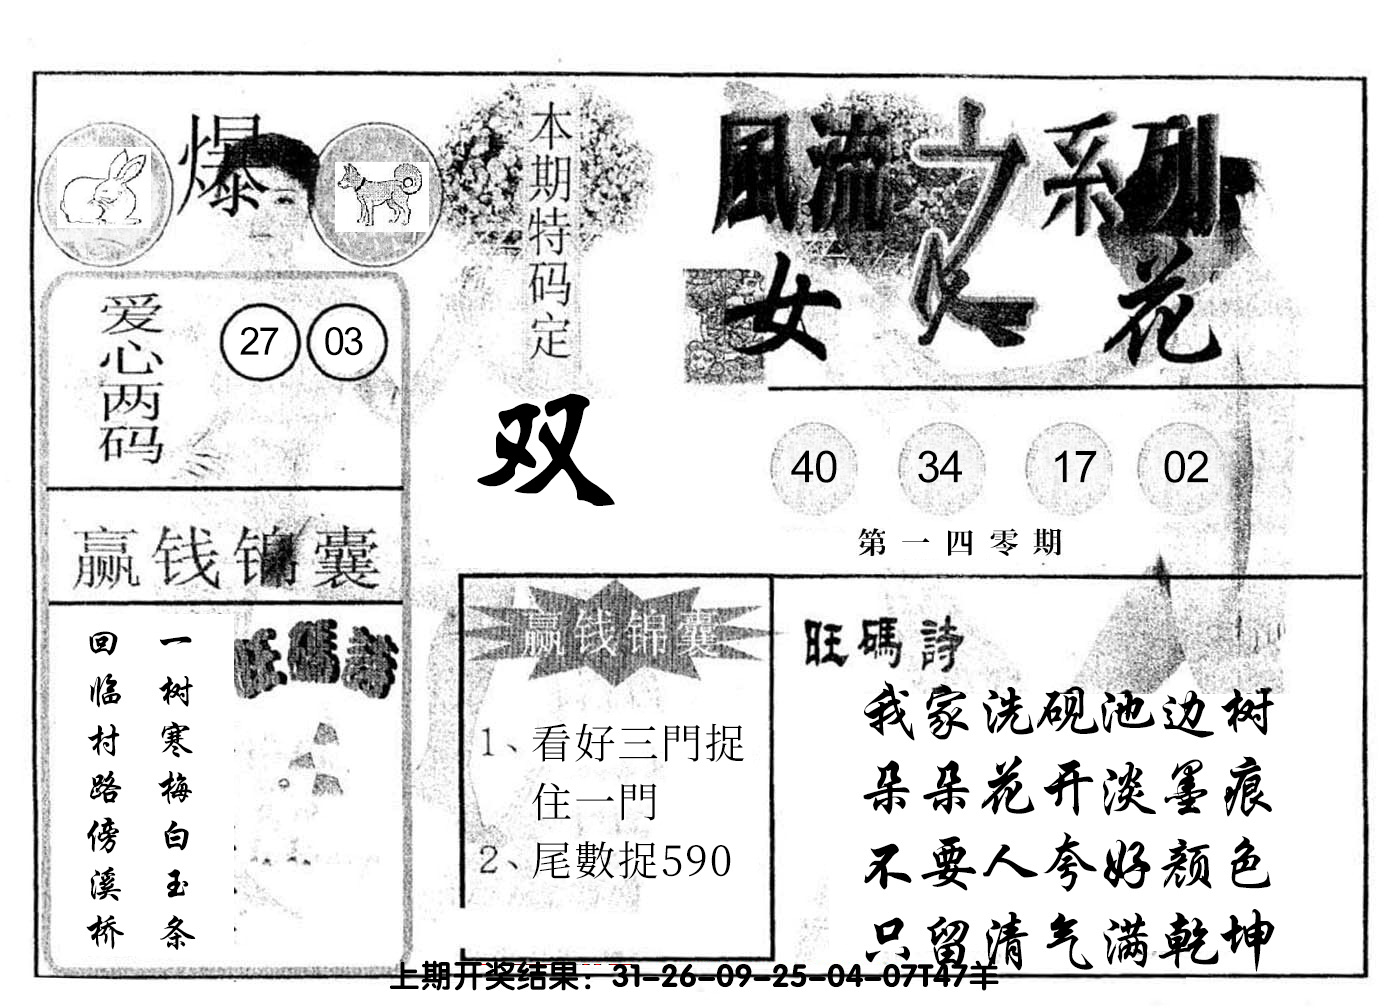 爆
本期特码定
双
風流之系列
女人花
爱心两码
27 03
赢钱锦囊
一树寒梅白玉条
回临村路傍溪桥
旺碼詩
40 34 17 02
第一四零期
赢钱锦囊
1、看好三門捉
住一門
2、尾數捉590
旺碼詩
我家洗砚池边树
朵朵花开淡墨痕
不要人夸好颜色
只留清气满乾坤
上期开奖结果：31-26-09-25-04-07T47羊